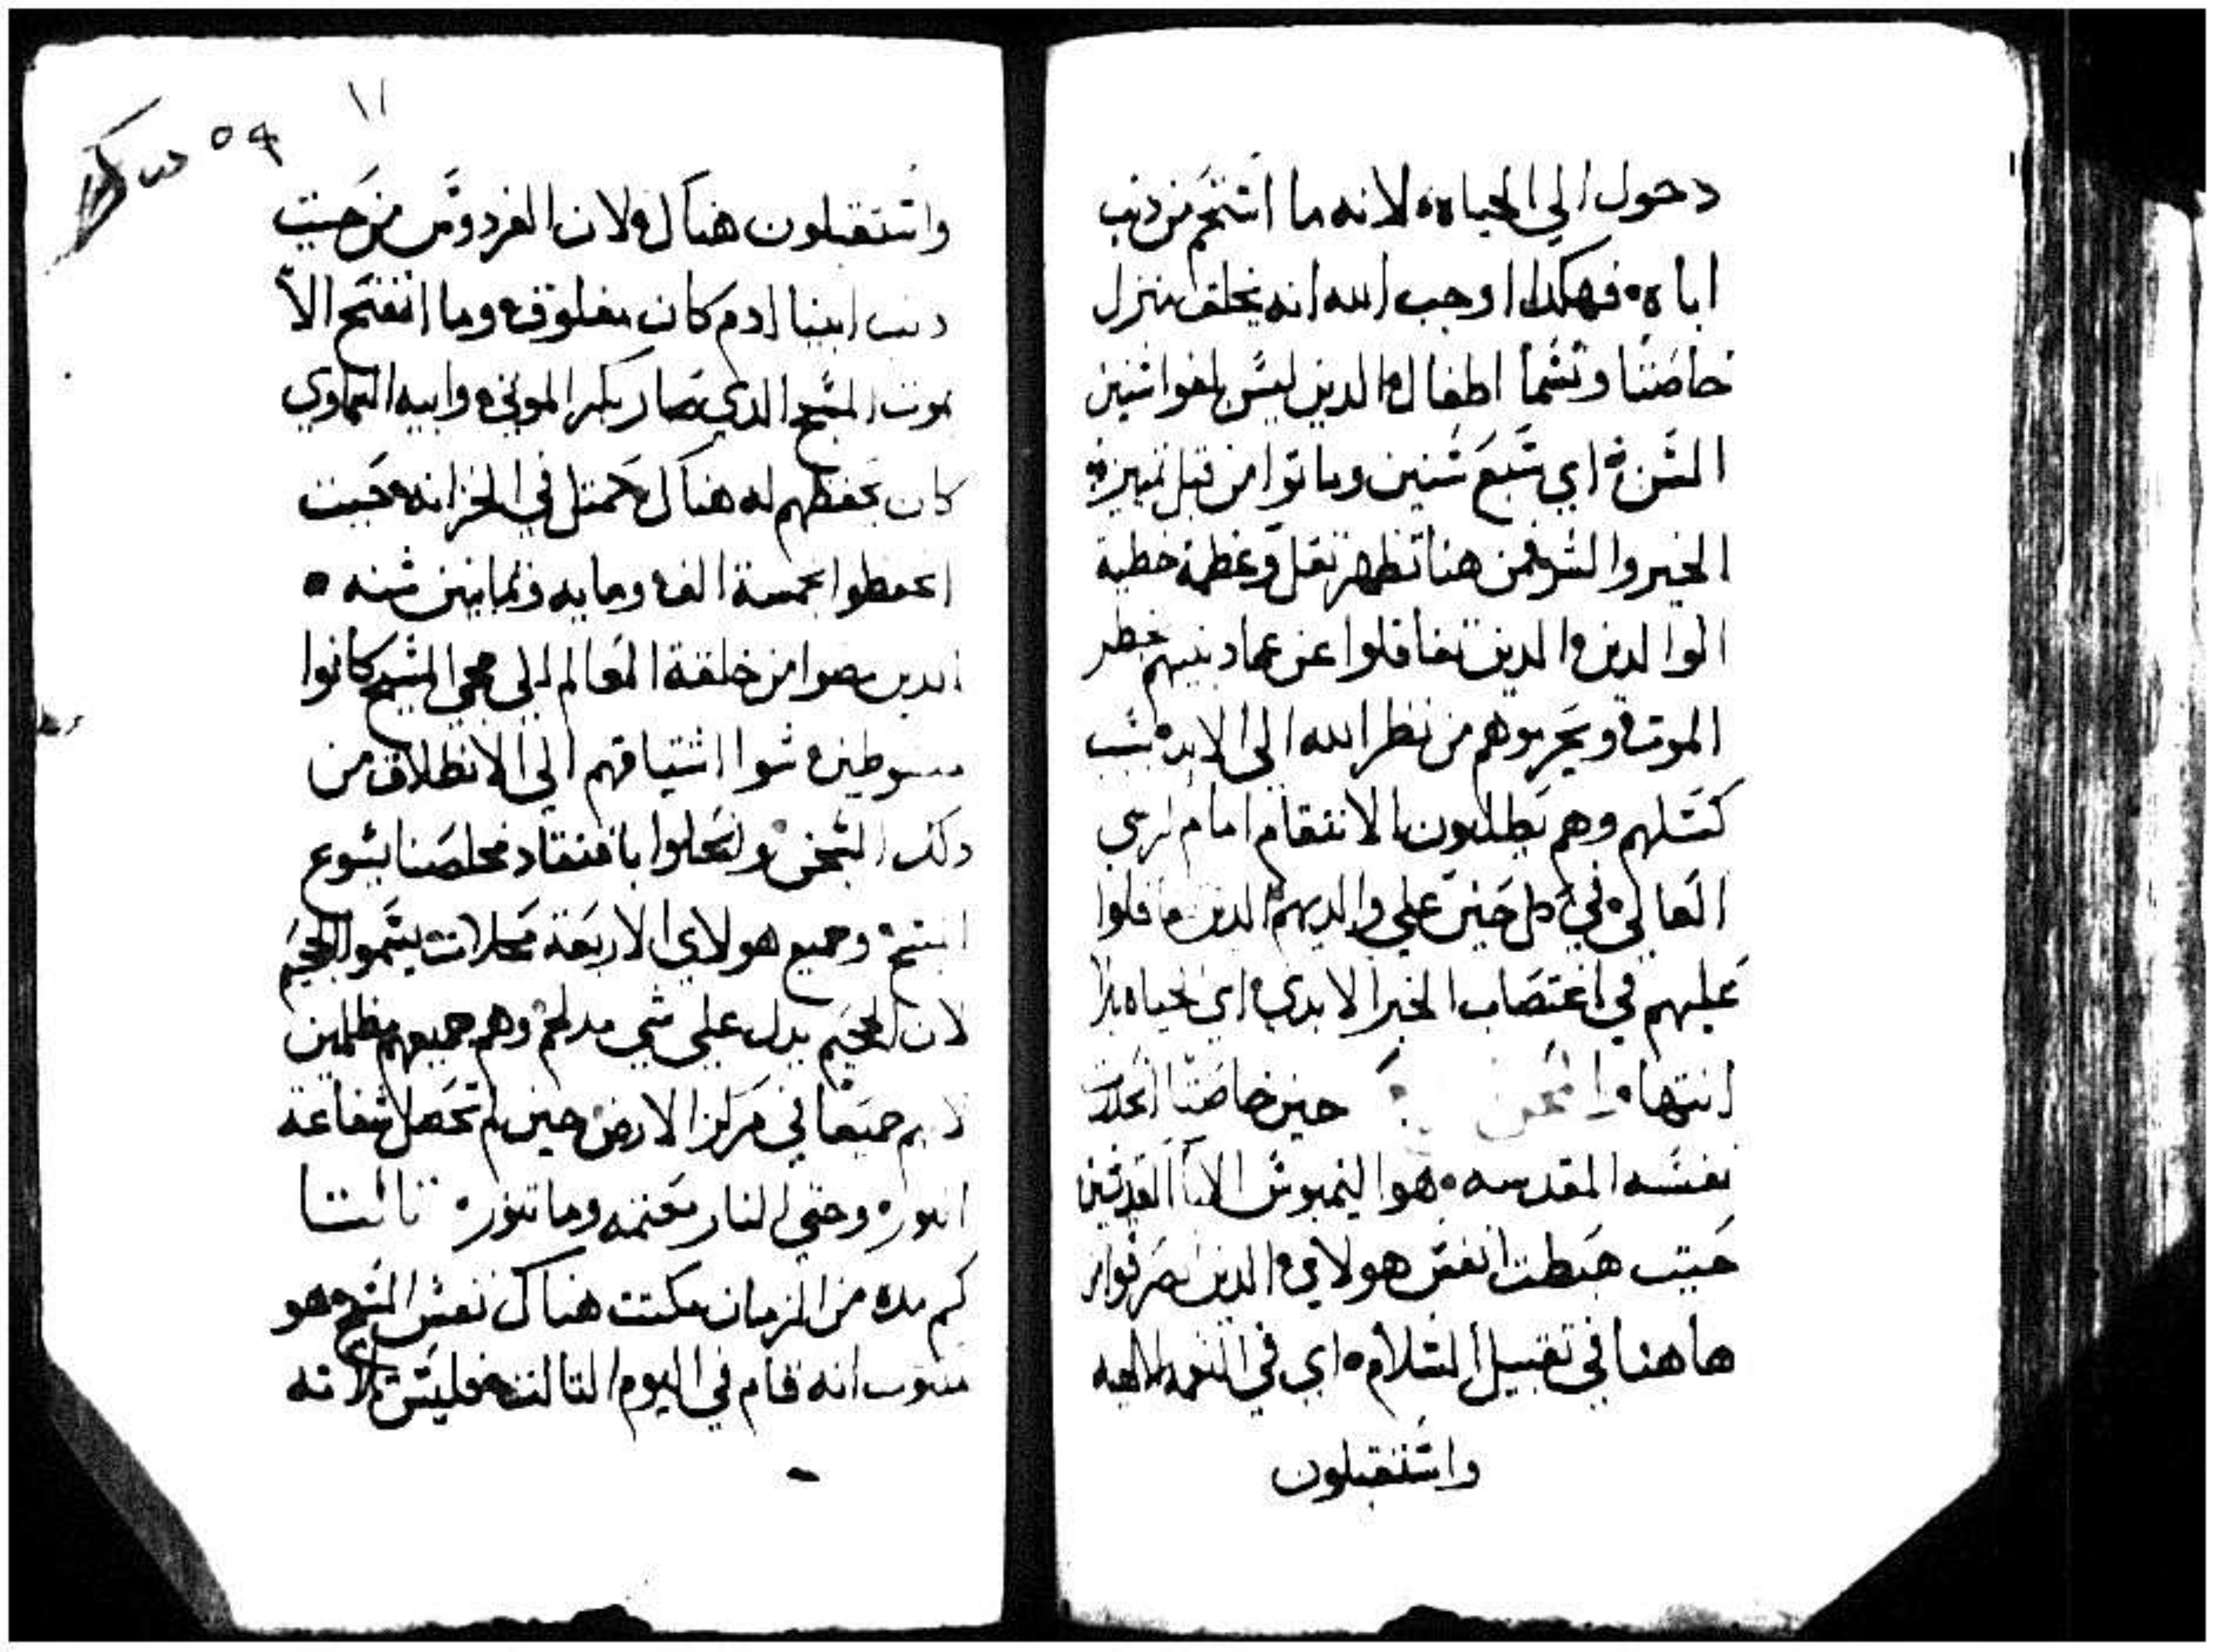 دخول الي الحياه، لانه ما استحم من دنب
اباه، فهكدا اوجب الله انه يخلق منزل
خاصتا وتسما اطفال الدين ليس بلغوا سنين
السن، اي سبع سنين وماتوا من قبل تميزة
الخير والشر، فمن هنا تظهر تقل وعظمة خطية
الوالدين، الدين تغافلوا عن عماد بنيهم خطر
الموت، ويحرموهم من نظر الله الي الابد، بسبب
كسلهم وهم يطلبون الانتقام امام الرب
العالي، في كل حين علي والديهم الدين غافلوا
عليهم في اغتصاب الخير الابدي، اي الحياه بلا
انتها، حين خاصتا انحدرت
نفسه المقدسه، هوا لينبوس الابا القديسين
حيت هبطت انفس هولاي، الدين انصرفوا من
هاهنا في تقبيل السلام، اي في النعمه الالهيه
واستقبلون
١١
٥٩
واستقبلون هناك، ولان الفردوس من حيت
دنب ابينا ادم كان مغلوق، وما انفتح الا
بموت المسيح الدي صار بكر الموتي، وابيه السماوي
كان يحفظهم له هناك، كمتل في الخزانه، حيت
انحفظوا بخمسة الف، ومايه وتمانين سنه ٥
الدين مضوا من خلقة العالم الي مجي المسيح كانوا
مبسوطين، سوا اشتياقهم الي الانطلاق من
دلك السجن، وانحلوا بافتقاد مخلصنا يسوع
المسيح، وجميع هولاي الاربعة محلات يسموا الجحيم
لان الجحيم يدل علي شي مدلهم، وهم جميعهم مظلمين
لانهم جميعا في مركز الارض، حين لم تحصل شفاعة
النور، وحتي النار معتمه وما تنور، تالتا
كم مده من الزمان مكتت هناك نفس المسيح، هو
متبوت انه قام في اليوم التالت، فليس تلاته